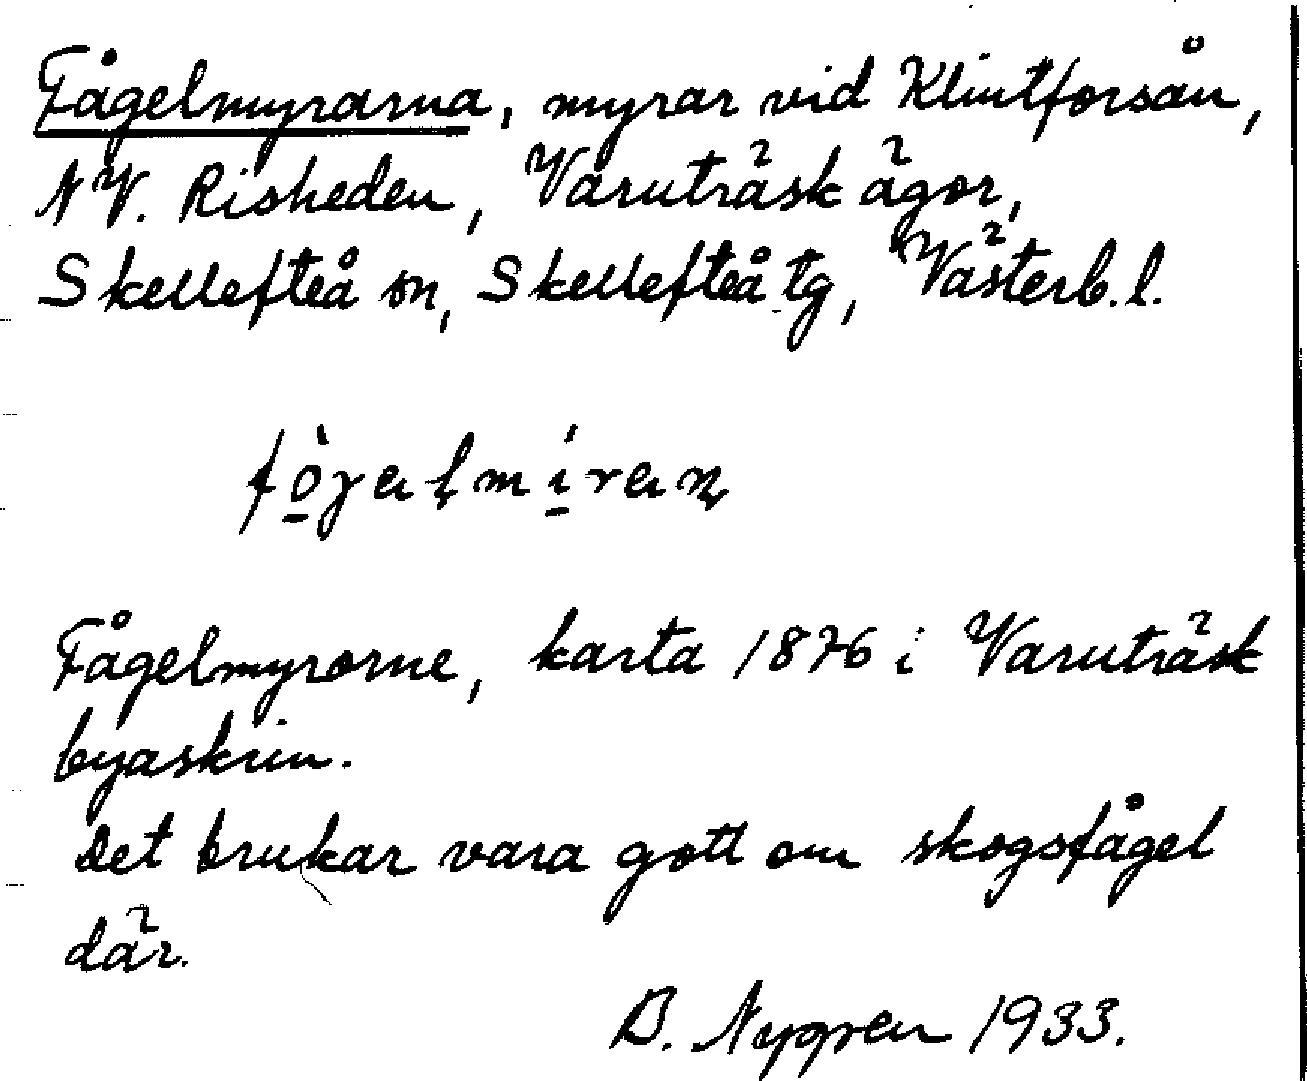 Fågelmyrarna, myrar vid Klintforsån,
NV. Risheden, Varuträsk ägor,
Skellefteå sn, Skellefteå tg, Västerb. l.
Fågelmyrorne, karta 1876 i Varuträsk
byaskrin.
Det brukar vara gott om skogsfågel
där.
B. Nygren 1933.